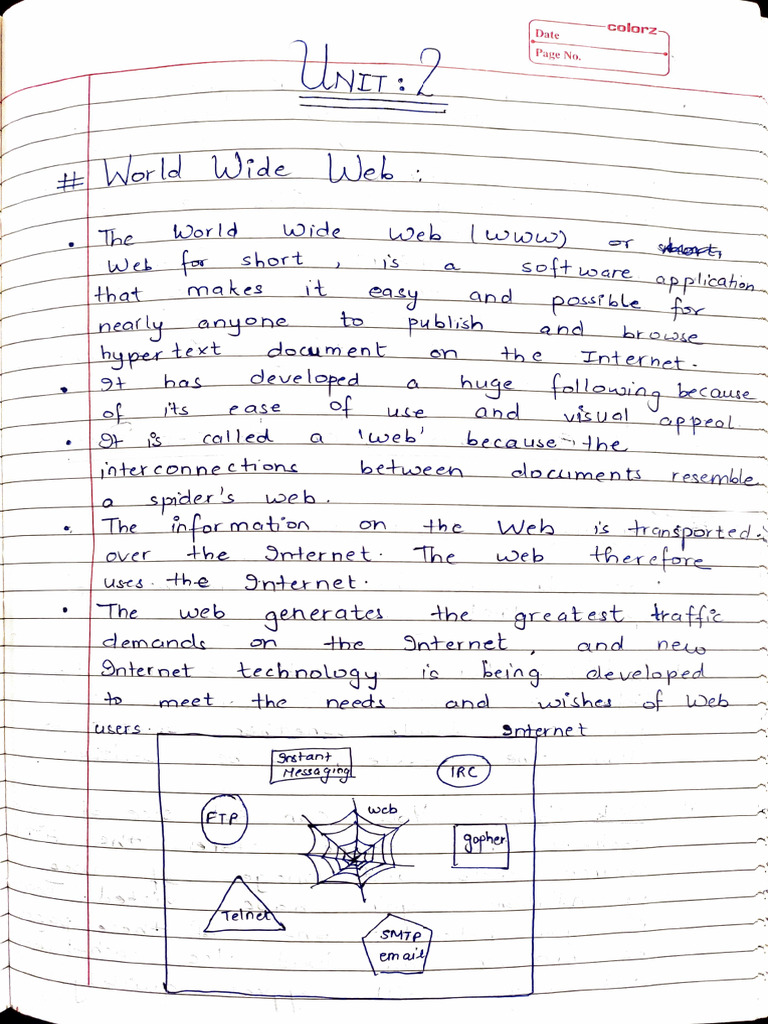 colorz
Date
Page No.
UNIT : 2
# World Wide Web :
• The World Wide Web (WWW) or
Web for short, is a software application
that makes it easy and possible for
nearly anyone to publish and browse
hypertext document on the Internet.
• It has developed a huge following because
of its ease of use and visual appeal
• It is called a 'web' because the
interconnections between documents resemble
a spider's web.
• The information on the Web is transported
over the Internet. The web therefore
uses the Internet.
• The web generates the greatest traffic
demands on the Internet, and new
Internet technology is being developed
to meet the needs and wishes of Web
users.
Internet
Instant
Messaging
IRC
FTP
web
gopher
Telnet
SMTP
email